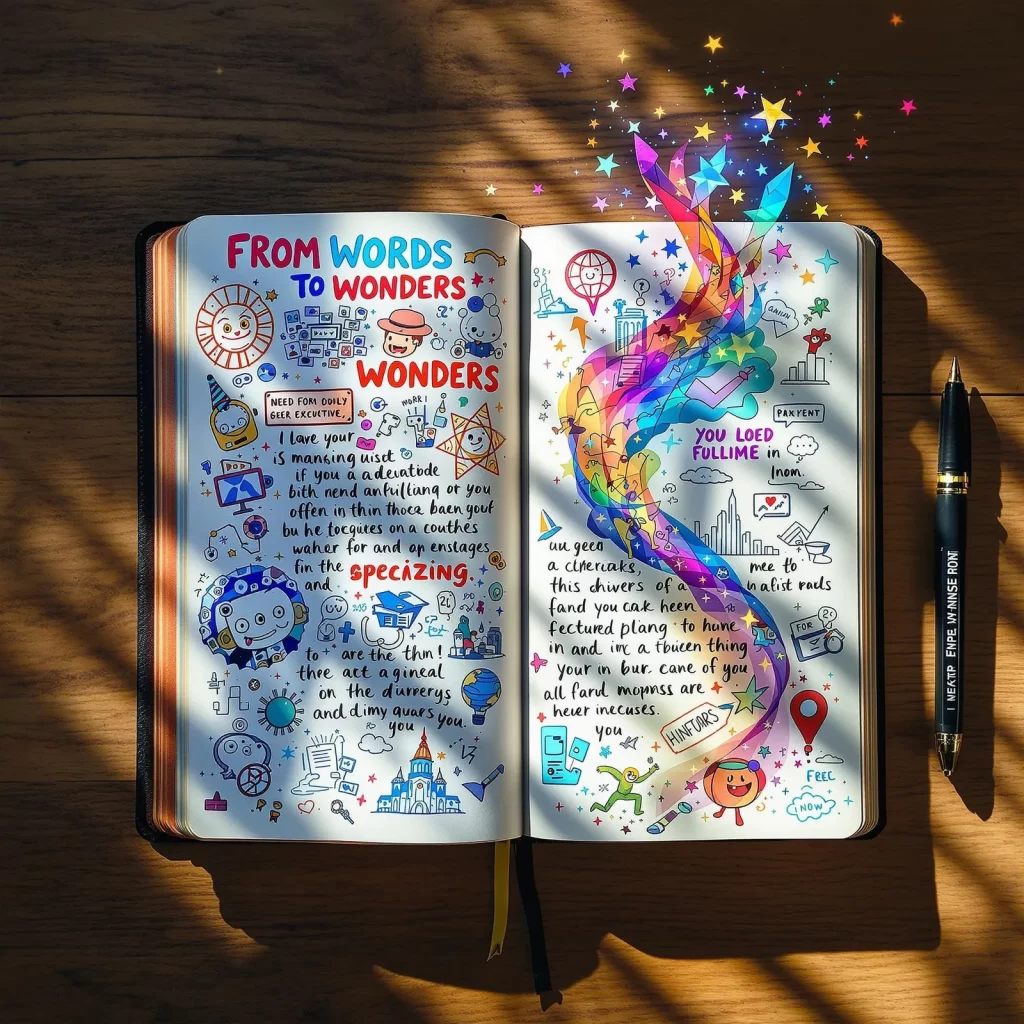 FROM WORDS
TO WONDERS
WONDERS
NEED FOR DOILY
GEER EXCUTIVE,
WORK!
I lave your
is mansing uist
if you a adeuatbde
bith nend anfuiltiang or you
offen in thin thoca baen youf
bu he tocquires on a couthes
waher for and op enstages
fin the
and. specizing.
to are the thn!
three act a gineal
on the diurrerys
and dimy quars you.
you
PAXYENT
YOU LOED
FULLIME in
uu geen
a clmeriaks,
mee to
this chivers of a
fand you cak heen
fectured plang to hune
in and inc a tbuicen thing
Your in bur. cane of you
all farul mopnss are
heuer inecuses.
you
HUNFOARS
FOR
FREE
INOW